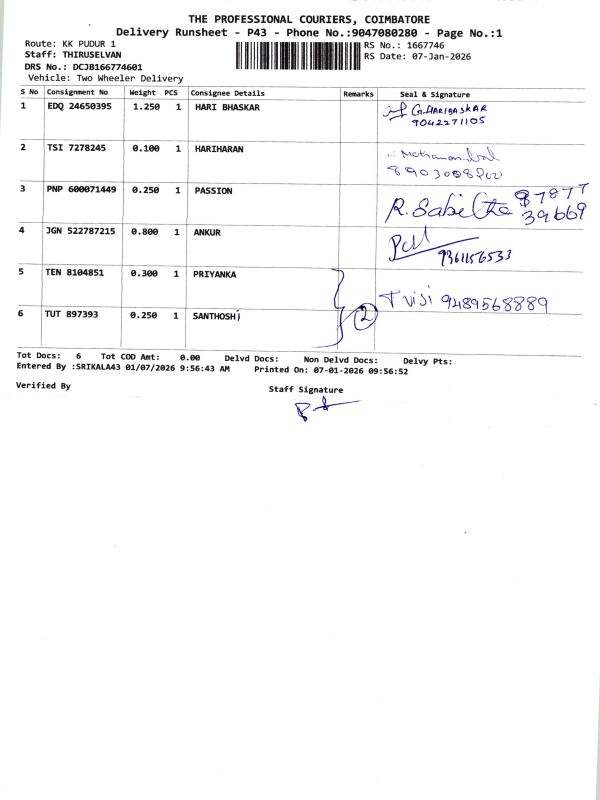 THE PROFESSIONAL COURIERS, COIMBATORE
Delivery Runsheet - P43 - Phone No.:9047080280 - Page No.:1
Route: KK PUDUR 1
RS No.: 1667746
Staff: THIRUSELVAN
RS Date: 07-Jan-2026
DRS No.: DCJB166774601
Vehicle: Two Wheeler Delivery
S No Consignment No Weight PCS Consignee Details Remarks Seal & Signature
1 EDQ 24650395 1.250 1 HARI BHASKAR G.HARIBASKAR
9042271105
2 TSI 7278245 0.100 1 HARIHARAN
3 PNP 600071449 0.250 1 PASSION R. 
39669
4 JGN 522787215 0.800 1 ANKUR
9361156533
5 TEN 8104851 0.300 1 PRIYANKA
T viji 9489568889
6 TUT 897393 0.250 1 SANTHOSHi 2
Tot Docs: 6 Tot COD Amt: 0.00 Delvd Docs: Non Delvd Docs: Delvy Pts:
Entered By :SRIKALA43 01/07/2026 9:56:43 AM Printed On: 07-01-2026 09:56:52
Verified By
Staff Signature